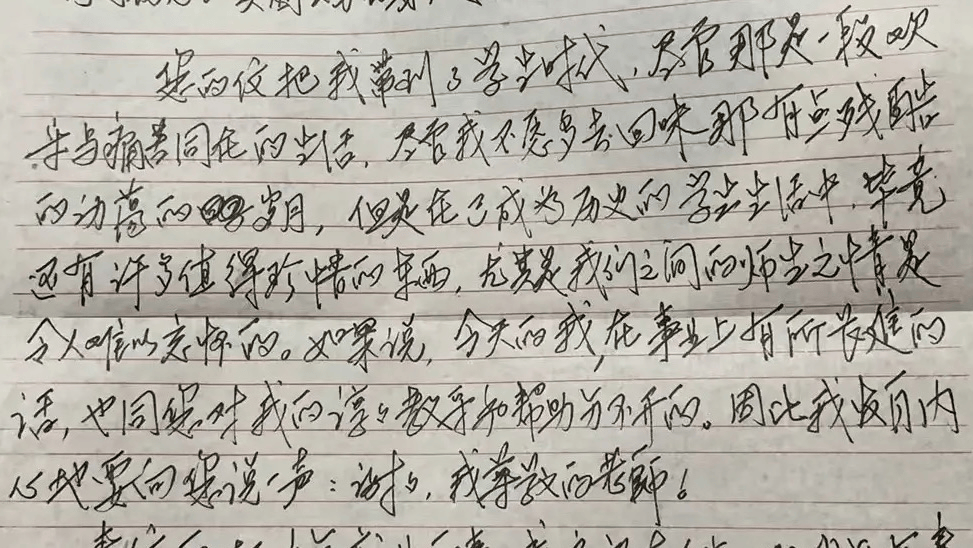 您的信把我带到了学生时代，尽管那是一段欢
乐与痛苦同在的生活，尽管我不愿多去回味那有些残酷
的动荡的岁月，但是在已成为历史的学生生活中，毕竟
还有许多值得珍惜的东西，尤其是我们之间的师生之情是
令人难以忘怀的。如果说，今天的我，在事业上有所长进的
话，也同您对我的谆谆教导和帮助分不开的。因此我发自内
心地要向您说一声：谢谢，我尊敬的老师！